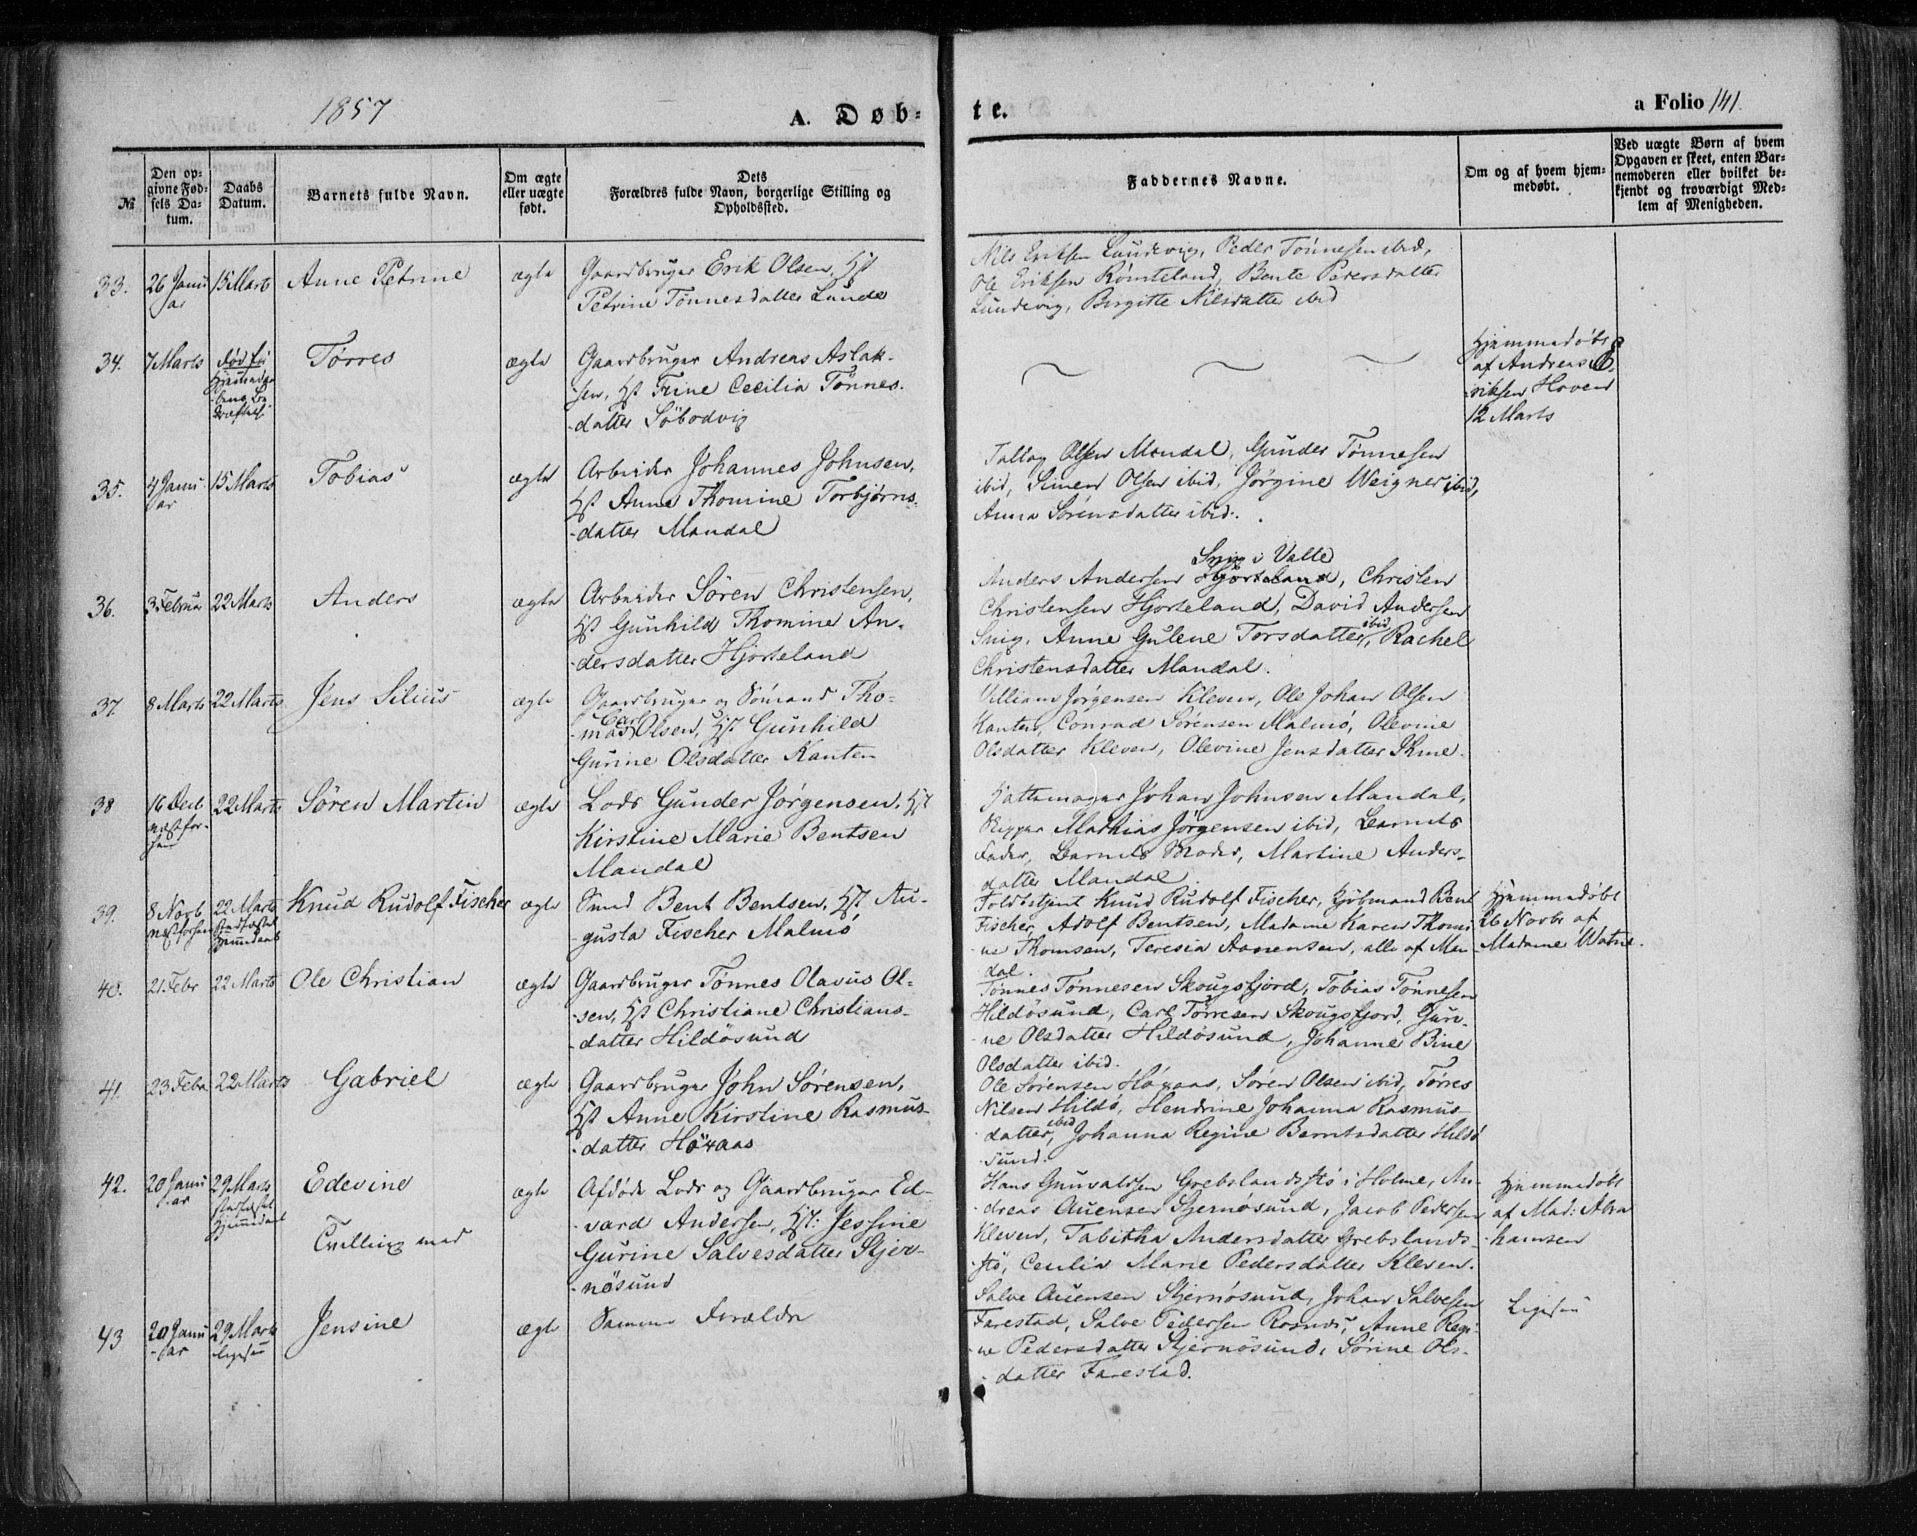 1857
A. Døb-
te.
a Folio 141.
№
Den op-
givne Fød-
sels Da-
tum.
Daabs
Datum.
Barnets fulde Navn.
Om ægte
eller uægte
født.
Dets
Forældres fulde Navn, borgerlige Stilling og
Opholdssted.
Faddernes Navne.
Om og af hvem hjem-
medøbt.
Ved uægte Børn af hvem
Opgaven er skeet, enten Bar-
nemoderen eller hvilket be-
kjendt og troværdigt Med-
lem af Menigheden.
33. 26 Janu
ar
15 Marts
Anne Petrine
ægte
Gaardbruger Erik Olsen, Hst
Petrine Tønnesdatter Lunde
Nils Eriksen Lundevig, Peder Tønnesen ibid,
Ole Eriksen Rømteland, Bente Pedersdatter
Lundevig, Birgitte Nilsdatter ibid
34. 7 Marts
Død før
Tørres
ægte
Gaardbruger Andreas Aslak-
sen, Hst Trine Cecilia Tønnes-
datter Säbodvig
Hjemmedøbt
af Andreas
riksen Hoven
12 Marts
35. 4 Janu
ar
15 Marts
Tobias
ægte
Arbeider Johannes Johnsen,
Hst Anne Thomine Torbjørns-
datter Mandal
Tallag Olsen Mandal, Gunder Tønnesen
ibid, Simen Olsen ibid, Jørgine Weigner ibid,
Anna Sørensdatter ibid.
36. 3 Februa
22 Marts
Anders
ægte
Arbeider Søren Christensen,
Hst Gunhild Thomine An-
dersdatter Hjorteland
Snig i Valle
Anders Andersen Hjorteland, Christen
Christensen Hjorteland, David Andersen
Snig, Anne Gulene Torsdatter ibid, Rachel
Christensdatter Mandal.
37. 8 Marts
22 Marts
Jens Silius
ægte
Gaardbruger og Sømand Tho-
mas Carl Olsen, Hst Gunhild
Gurine Olsdatter Kanten
Villiam Jørgensen Kleven, Ole Johan Olsen
Kanten, Conrad Sørensen Malmø, Olevine
Olsdatter Kleven, Olevine Jensdatter Skine.
38 16 Decb
næst for-
hen
22 Marts
Søren Martin
ægte
Lods Gunder Jørgensen, Hst
Kirstine Marie Bentsen
Mandal
Hattemager Johan Johnsen Mandal,
Skipper Mathias Jørgensen ibid, Barnets
Fader, Barnets Moder, Martine Anders-
datter Mandal.
39. 8 Novb
næstforhen
22 Marts
stadfæstet
Hjemmedaab
Knud Rudolf Fischer
ægte
Smed Bent Bentsen, Hst Au-
gusta Fischer Malmø
Toldbetjent Knud Rudolf Fischer, Kjøbmand Bent
Fischer, Adolf Bentsen, Madame Karen Thomi
ne Thomsen, Teresia Aanensen, alle af Man-
dal.
Hjemmedøbt
26 Novbr af
Madame Watne.
40. 21 Febr
22 Marts
Ole Christian
ægte
Gaardbruger Tønnes Olavus Ol-
sen, Hst Christiane Christians-
datter Hildøsund
Tønnes Tønnesen Skougsfjord, Tobias Tønnesen
Hildøsund, Carl Tørresen Skougsfjord, Guri-
ne Olsdatter Hildøsund, Johanne Bine
Olsdatter ibid.
41. 23 Feba
22 Marts
Gabriel
ægte
Gaardbruger John Sørensen,
Hst Anne Kirstine Rasmus-
datter Høyaas
Ole Sørensen Høyaas, Søren Olsen ibid, Tørres
Nilsen Hildø, Hendrine Johanna Rasmus-
datter ibid, Johanna Regine Berntsdatter Hildø
sund.
42. 20 Janu
ar
29 Marts
stadfæstet
Hjemmedaab
Edevine
Tvilling med
ægte
Afdøde Lods og Gaardbruger Ed-
vard Andersen, Hst: Jessine
Gurine Salvesdatter Stjer-
nøsund
Hans Gunvaldsen Grebslandstø i Holme, An-
dreas Auensen Stjernøsund, Jacob Pedersen
Kleven, Tabitha Andersdatter Grebslands-
stø, Cecilia Marie Pedersdatter Kleven.
Hjemmedøbt
af Mad: Abra
hamsen
43 20 Janu
ar
29 Marts
ligesaa
Jensine
ægte
Samme Forældre
Salve Auensen Stjernøsund, Johan Salvesen
Farestad, Salve Pedersen Rosnes, Anne Regi-
ne Pedersdatter Stjernøsund, Sørine Ols-
datter Farestad.
Ligesaa